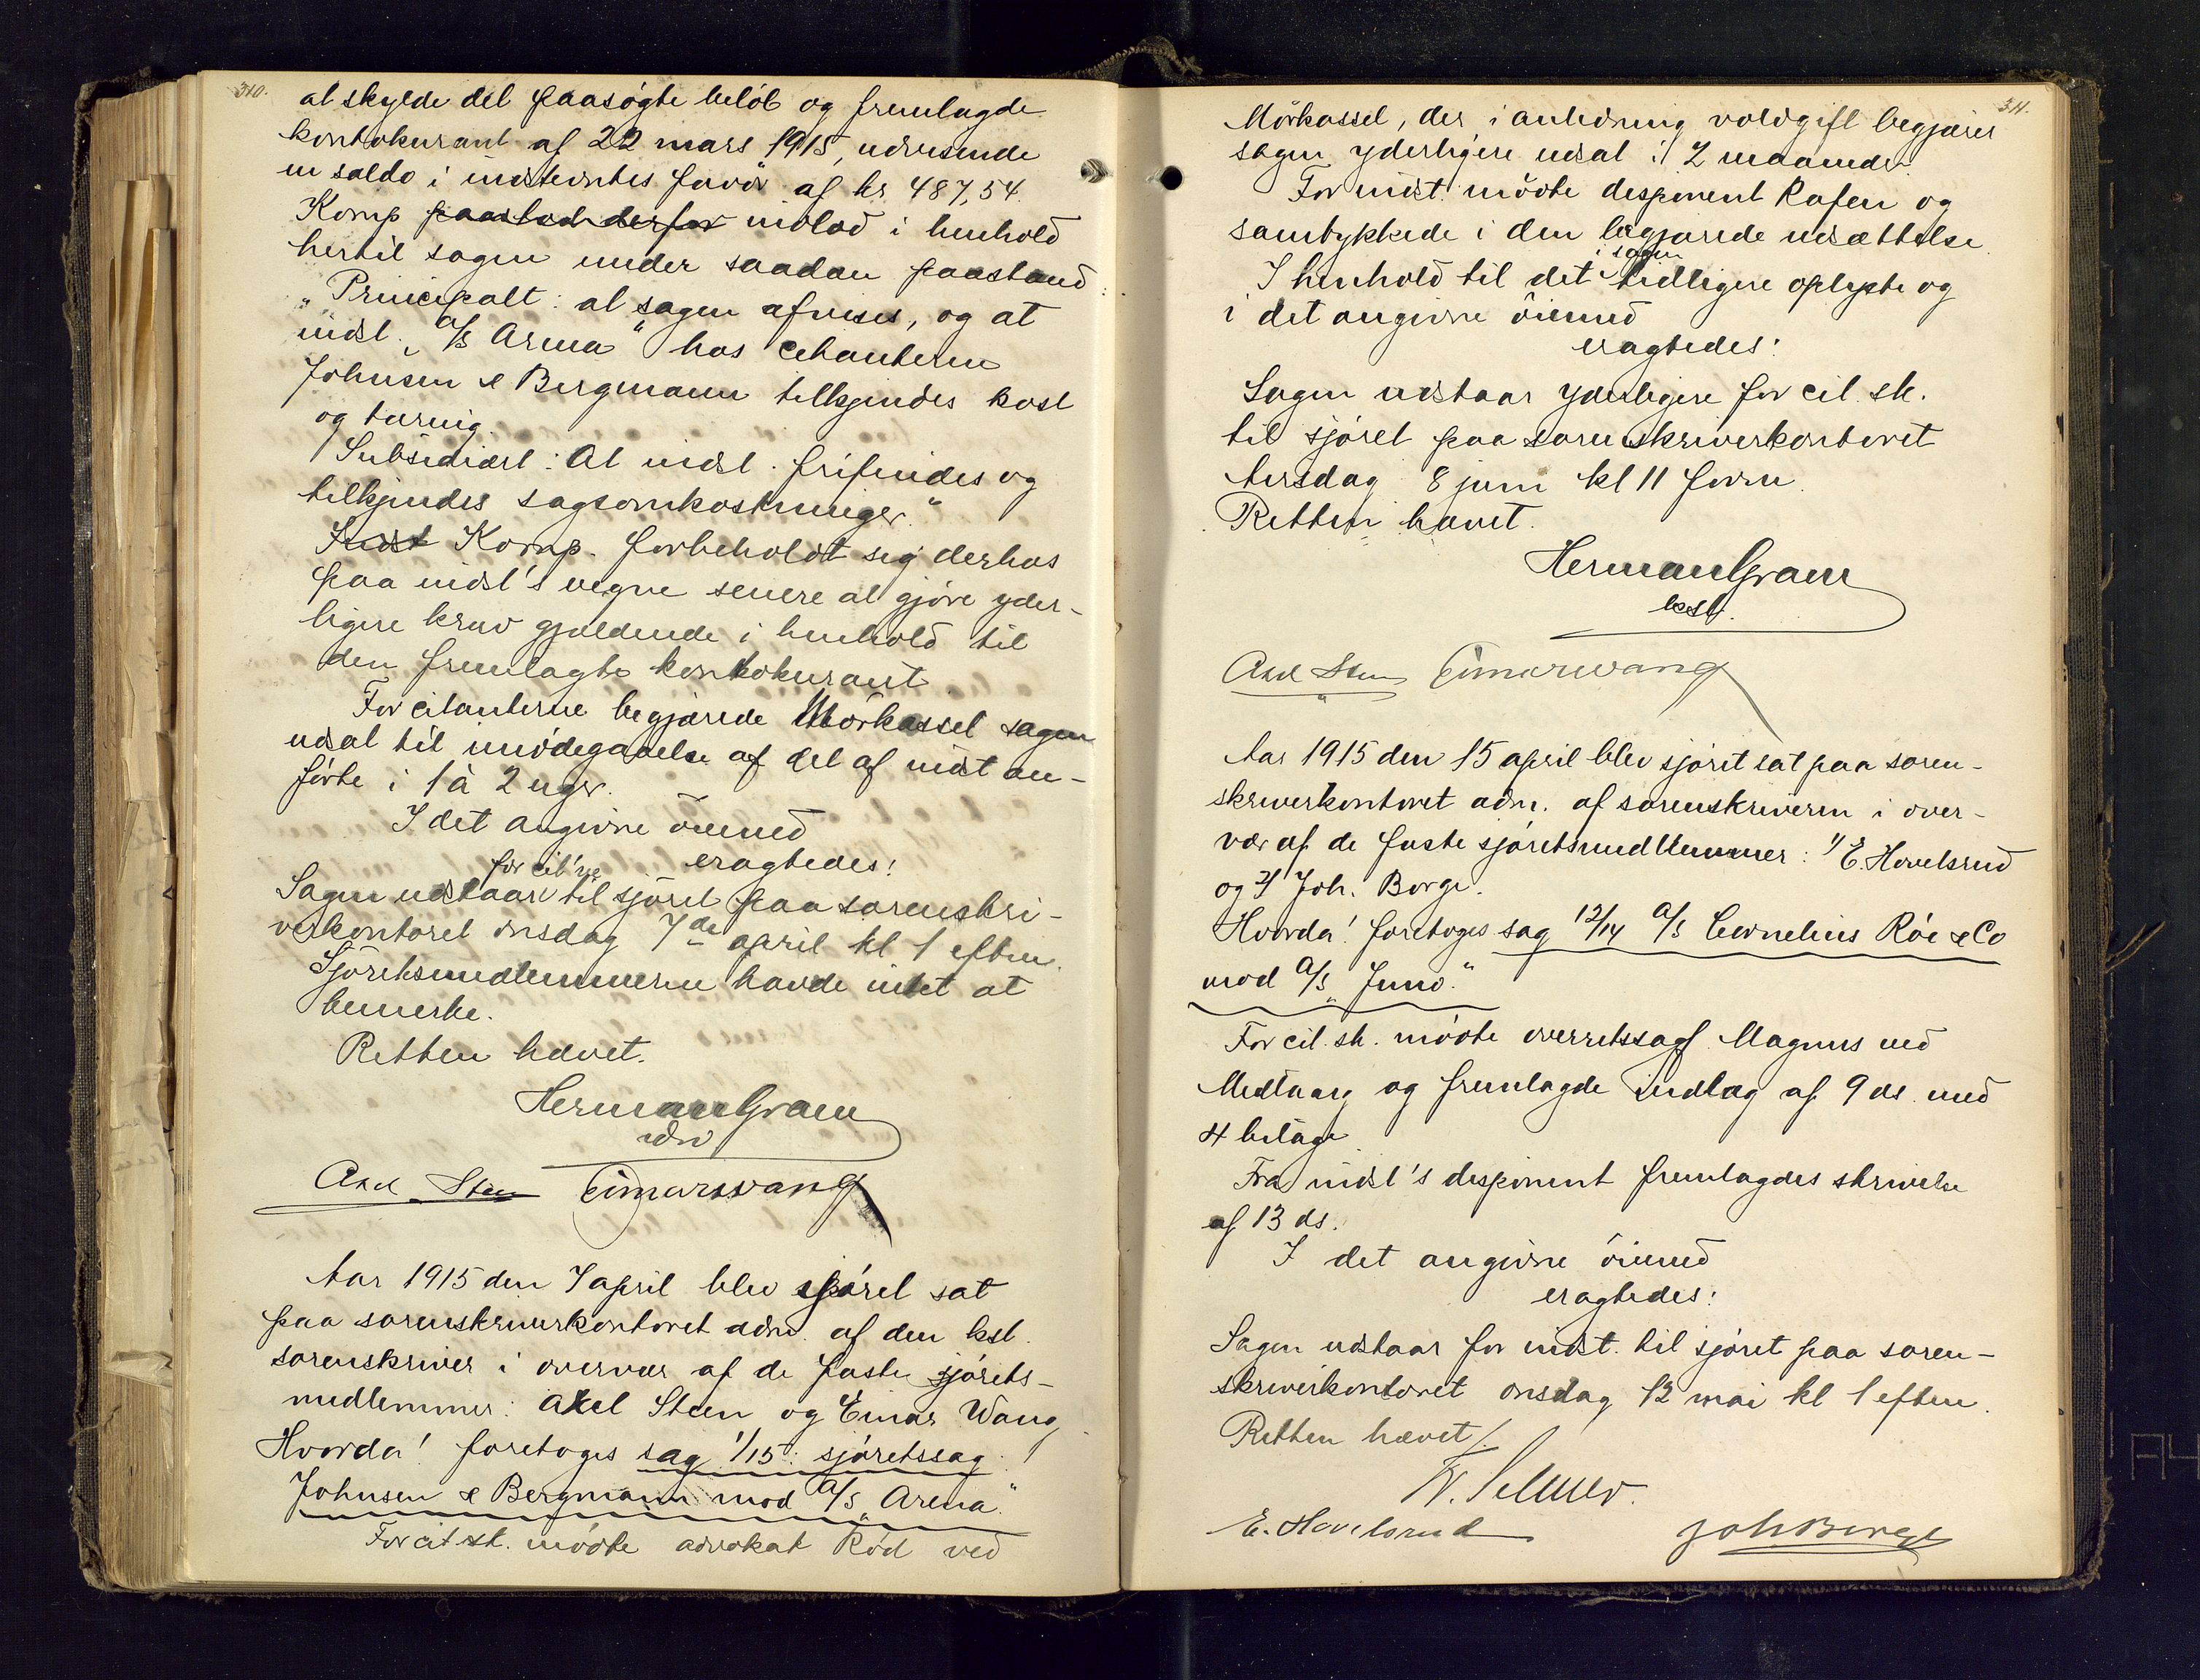 310.
at skylde det paasøgte beløb og fremlagde
kontokurant af 22 mars 1915, udvisende
en saldo i indstevntes favør af kr 487,54.
Komp paastod derfor indlod i henhold
hertil sagen under saadan paastand:
„Principalt: at sagen afvises, og at
indst. „A/S Arena“ hos citanterne
Johnsen & Bergmann tilkjendes kost
og tæring.
Subsidiært: At indst. frifindes og
tilkjendes sagsomkostninger.“
Indst Komp. forbeholdt sig derhos
paa indst's vegne senere at gjøre yder-
ligere krav gjældende i henhold til
den fremlagte kontokurant.
For citanterne begjærede Mørkassel sagen
udsat til imødegaaelse af det af indst an-
førte i 1 à 2 uger.
I det angivne øiemed
eragtedes:
for cit'ne
Sagen udstaar til sjøret paa sorenskri-
verkontoret onsdag 7de april kl 1 eftm.
Sjøretsmedlemmerne havde intet at
bemerke.
Retten hævet.
Herman Gram
edsv
Axel Steen Einar Wang
Aar 1915 den 7 april blev sjøret sat
paa sorenskriverkontoret adm. af den kst.
sorenskriver i overvær af de faste sjørets-
medlemmer: Axel Steen og Einar Wang
Hvorda! foretoges sag 1/15: sjøretssag:
Johnsen & Bergmann mod A/S „Arena“.
For cit. st. mødte advokat Rød ved
311.
Mørkassel, der i anledning voldgift begjærer
sagen yderligere udsat i 2 maaneder.
For indst. mødte disponent Rafen og
samtykkede i den begjærede udsættelse.
i sagen
I henhold til det tidligere oplyste og
i det angivne øiemed
eragtedes:
Sagen udstaar yderligere for cit. st.
til sjøret paa sorenskriverkontoret
tirsdag 8 juni kl 11 form.
Retten hævet.
Herman Gram
kst.
Axel Steen Einar Wang
Aar 1915 den 15 april blev sjøret sat paa soren-
skriverkontoret adm. af sorenskriveren i over-
vær af de faste sjøretsmedlemmer: 1) E. Hovelsrud
og 2) Joh. Borge.
Hvorda! foretoges sag 12/14 A/S Cornelius Röe & Co
mod A/S „Juno“.
For cit. st. mødte overretssagf. Magnus ved
Medtaarg og fremlagde indlæg af 9 ds. med
4 bilage.
Fra indst's disponent fremlagdes skrivelse
af 13 ds.
I det angivne øiemed
eragtedes:
Sagen udstaar for indst. til sjøret paa soren-
skriverkontoret onsdag 12 mai kl 1 eftm.
Retten hævet/.
E. Hovelsrud Joh Borge